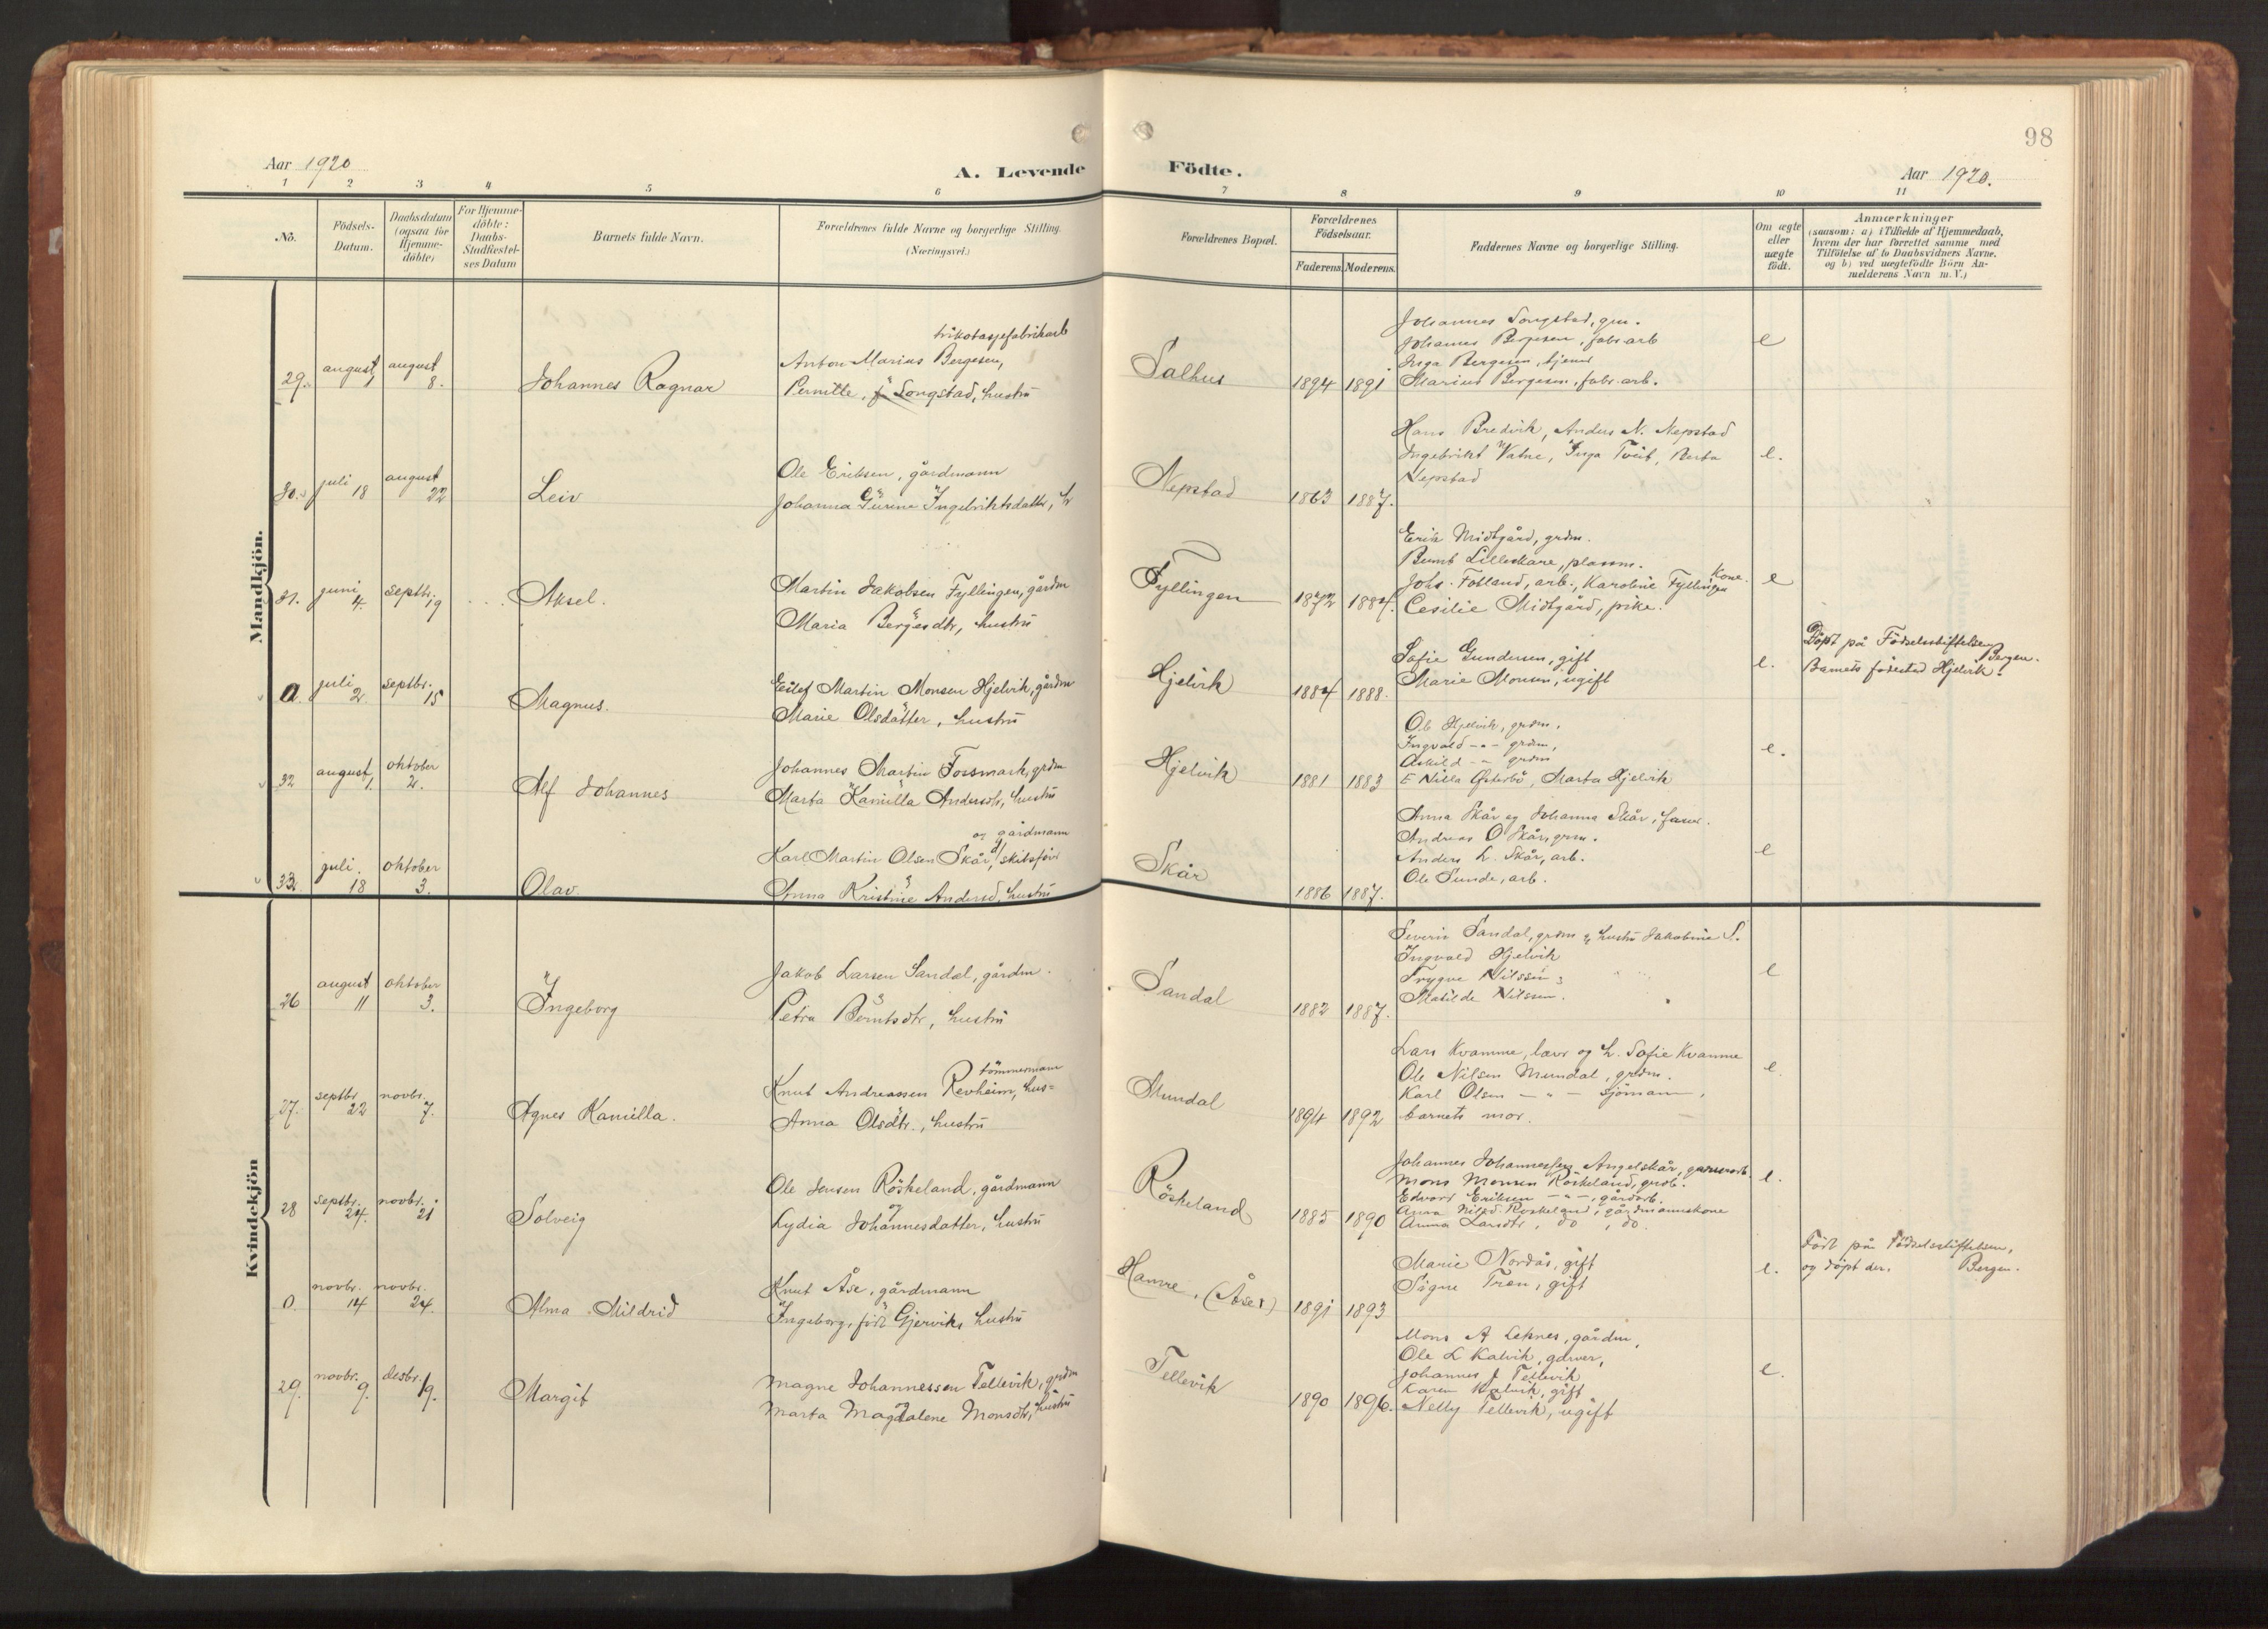 98
Aar 1920
A. Levende
Födte.
Aar 1920.
1 2 3 4 5 6 7 8 9 10 11
No.
Födsels-
Datum.
Daabsdatum
(ogsaa for
Hjemme-
döbte)
For Hjemme-
döbte:
Daabs-
Stadfæstel-
ses Datum
Barnets fulde Navn.
Forældrenes fulde Navne og borgerlige Stilling.
(Næringsvei.)
Forældrenes Bopæl.
Forældrenes
Födselsaar.
Faderens.
Moderens.
Faddernes Navne og borgerlige Stilling.
Om ægte
eller
uægte
födt.
Anmærkninger
(saasom: a) i Tilfælde af Hjemmedaab,
hvem der har forrettet samme med
Tilföielse af to Daabsvidners Navne.
og b) ved uægtefödte Börn An-
melderens Navn m. V.)
Mandkjön.
29.
august 1
august 8.
Johannes Ragnar
trikotasjefabrikarb
Anton Marius Bergesen,
Pernille, f Songstad, hustru
Salhus
1894 1891
Johannes Songstad, gm.
Johannes Bergesen, fabr arb
Inga Bergesen, tjener
Marius Bergesen, fabr. arb.
e
30.
juli 18
august 22
Leiv
Ole Eriksen, gårdmann
Johanna Gurine Ingebriktsdatter, h
Nepstad
1863 1887.
Hans Bredvik, Anders N. Nepstad
Ingebrikt Vatne, Inga Tveit, Berta
Nepstad
e.
31.
juni 4.
septbr. 19
Aksel.
Martin Jakobsen Fyllingen, gårdm
Maria Bergesdtr, hustru
Fyllingen
1872 1884.
Erik Midtgård, grdm.
Bernt Lilleskare, plassm.
Johs. Fotland, arb., Karoline Fyllingen kone.
Cesilie Midtgård, pike.
e
0.
juli 2.
septbr. 15
Magnus.
Eilef Martin Monsen Hjelvik, gårdm
Marie Olsdatter, hustru
Hjelvik
1884 1888.
Sofie Gundersen, gift
Marie Monsen, ugift
e.
Döpt på Födselsstiftelsen Bergen.
Barnets födested Hjelvik.
32
august 1.
oktober 2.
Alf Johannes
Johannes Martin Fossmark, grdm
Marta Kamilla Andersdtr, hustru
Hjelvik
1881 1883
Ole Hjelvik, grdm.
Ingvald -"- grdm,
Askild -"- grdm
E Nilla Østerbö, Marta Hjelvik
e.
33.
juli. 18
oktober 3.
Olav
og gårdmann
Karl Martin Olsen Skår, skibsförer
Anna Kristine Andersd, hustru
Skår
1886 1887.
Anna Skår og Johanna Skår,
Andreas O Skår, grm.
Anders L. Skår, arb.
Ole Sunde, arb.
e
Kvindekjön
26
august 11
oktober 3.
Ingeborg
Jakob Larsen Sandal, gårdm.
Petra Berntsdtr, hustru
Sandal
1882 1887.
Severin Sandal, grdm & hustru Jakobine S.
Ingvald Hjelvik
Trygve Nilssen
Matilde Nilssen.
e
27.
septbr 22
novbr. 7.
Agnes Kamilla.
tömmermann
Knut Andreassen Revheim, hus=
Anna Olsdtr., hustru
Mundal
1894 1892
Lars Kvamme, lærer og h. Sofie Kvamme
Ole Nilsen Mundal, grdm.
Karl Olsen -"- sjömann,
barnets mor.
e.
28
septbr. 24.
novbr. 21
Solveig
Ole Jensen Röskeland, gårdmann
og
Lydia Johannesdatter, hustru
Röskeland
1885 1890
Johannes Johannessen Angelskår,
Mons Monsen Röskeland,
Edvard Eriksen -"-, gårdarb.
Anna Nilsd. Roskeland, gårdmannskone
Anna Larsdtr, do, do.
e.
0.
novbr. 14
novbr. 24.
Alma Mildrid
Knut Åse, gårdmann
Ingeborg, född Gjervik, hustru
Hamre, (Åse)
1891 1893
Marie Nordås, gift
Signe Træn, gift
e.
Född på Födselsstiftelsen,
og döpt der. Bergen.
29.
novbr. 9.
desbr. 19.
Margit
Magne Johannessen Tellevik, grdm
Marta Magdalene Monsdtr, hustru
Tellevik
1890 1896.
Mons A Leknes, gårdm,
Ole L Kalvik, garver,
Johannes J Tellevik
Karen Kalvik, gift
Nelly Tellevik, ugift
e.